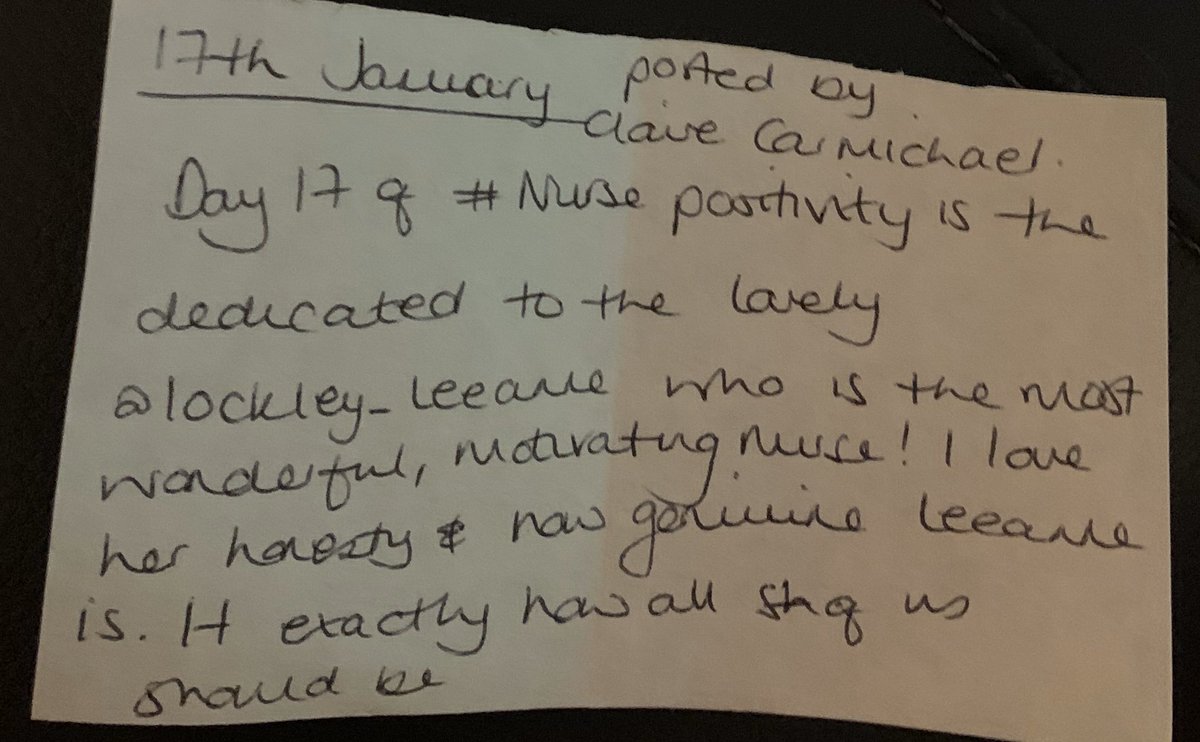 17th January posted by
Claire Carmichael.
Day 17 of #Nurse positivity is the
dedicated to the lovely
@lockley_leeanne who is the most
wonderful, motivating nurse! I love
her honesty & how genuine leeanne
is. It exactly how all of us
should be